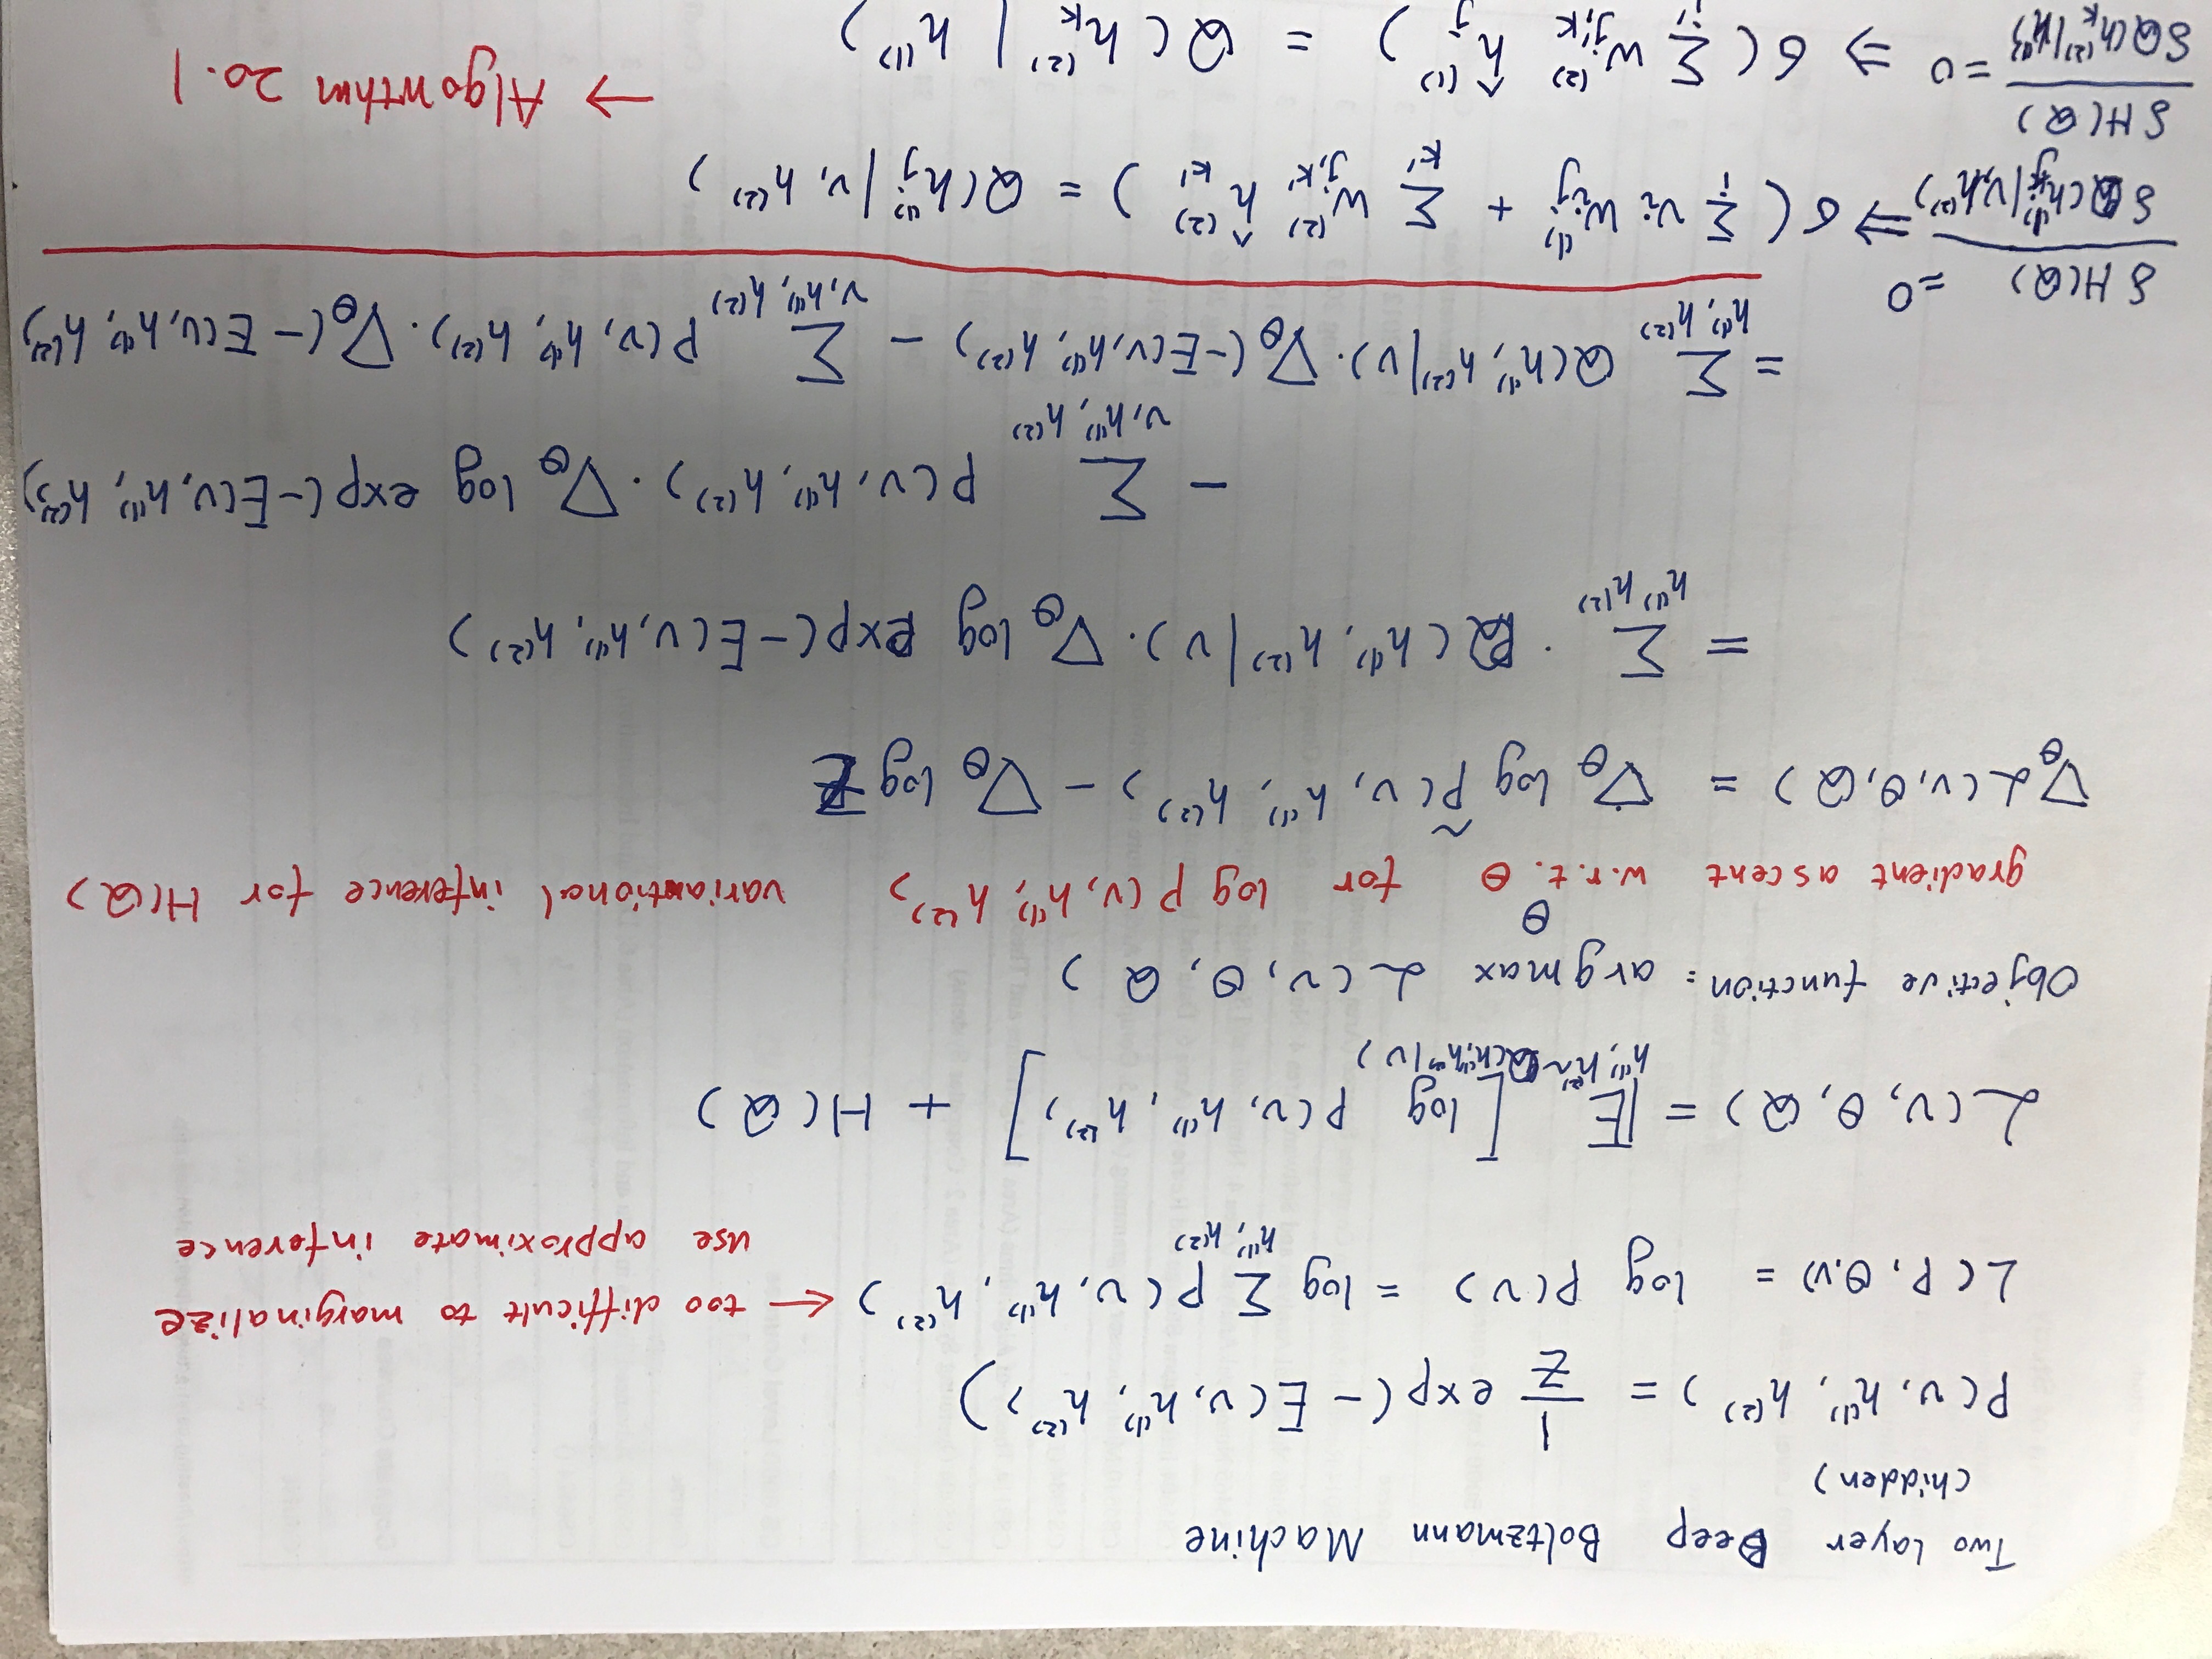 Two Layer Deep Boltzmann Machine
(hidden)
P(v, h⁽¹⁾, h⁽²⁾) = 1/Z exp(-E(v, h⁽¹⁾, h⁽²⁾))
L(P, θ, v) = log P(v) = log Σ_{h⁽¹⁾, h⁽²⁾} P(v, h⁽¹⁾, h⁽²⁾) ← too difficult to marginalize
use approximate inference
ℒ(v, θ, Q) = 𝔼_{h⁽¹⁾, h⁽²⁾ ~ Q(h⁽¹⁾, h⁽²⁾|v)} [log P(v, h⁽¹⁾, h⁽²⁾)] + H(Q)
Objective function: argmax_θ ℒ(v, θ, Q)
gradient ascent w.r.t. θ for log P(v, h⁽¹⁾, h⁽²⁾) variational inference for H(Q)
∇_θ ℒ(v, θ, Q) = ∇_θ log P̃(v, h⁽¹⁾, h⁽²⁾) - ∇_θ log Z
= Σ_{h⁽¹⁾, h⁽²⁾} · Q(h⁽¹⁾, h⁽²⁾|v) · ∇_θ log exp(-E(v, h⁽¹⁾, h⁽²⁾)
- Σ_{v, h⁽¹⁾, h⁽²⁾} P(v, h⁽¹⁾, h⁽²⁾) · ∇_θ log exp(-E(v, h⁽¹⁾, h⁽²⁾)
= Σ_{h⁽¹⁾, h⁽²⁾} Q(h⁽¹⁾, h⁽²⁾|v) · ∇_θ(-E(v, h⁽¹⁾, h⁽²⁾) - Σ_{v, h⁽¹⁾, h⁽²⁾} P(v, h⁽¹⁾, h⁽²⁾) · ∇_θ(-E(v, h⁽¹⁾, h⁽²⁾)
δH(Q)/δQ(h_j⁽¹⁾|v, h⁽²⁾) = 0 ⇒ σ(Σ_i v_i W_{ij}⁽¹⁾ + Σ_{k'} W_{j,k'}⁽²⁾ ĥ_{k'}⁽²⁾) = Q(h_j⁽¹⁾|v, h⁽²⁾)
δH(Q)/δQ(h_k⁽²⁾|h⁽¹⁾) = 0 ⇒ σ(Σ_{j'} W_{j',k}⁽²⁾ ĥ_{j'}⁽¹⁾) = Q(h_k⁽²⁾|h⁽¹⁾)
→ Algorithm 20.1